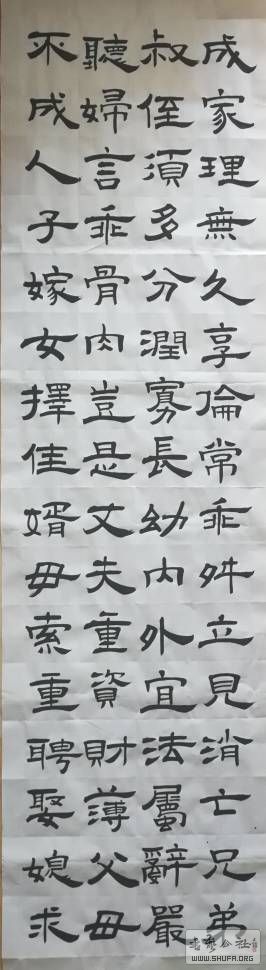 成家理無久享倫常乖舛立見消亡兄弟
叔侄須多分潤寡長幼内外宜法屬辭嚴
聽婦言乖骨肉豈是丈夫重資財薄父母
不成人子嫁女擇佳婿毋索重聘娶媳求
WWW.SHUFA.ORG